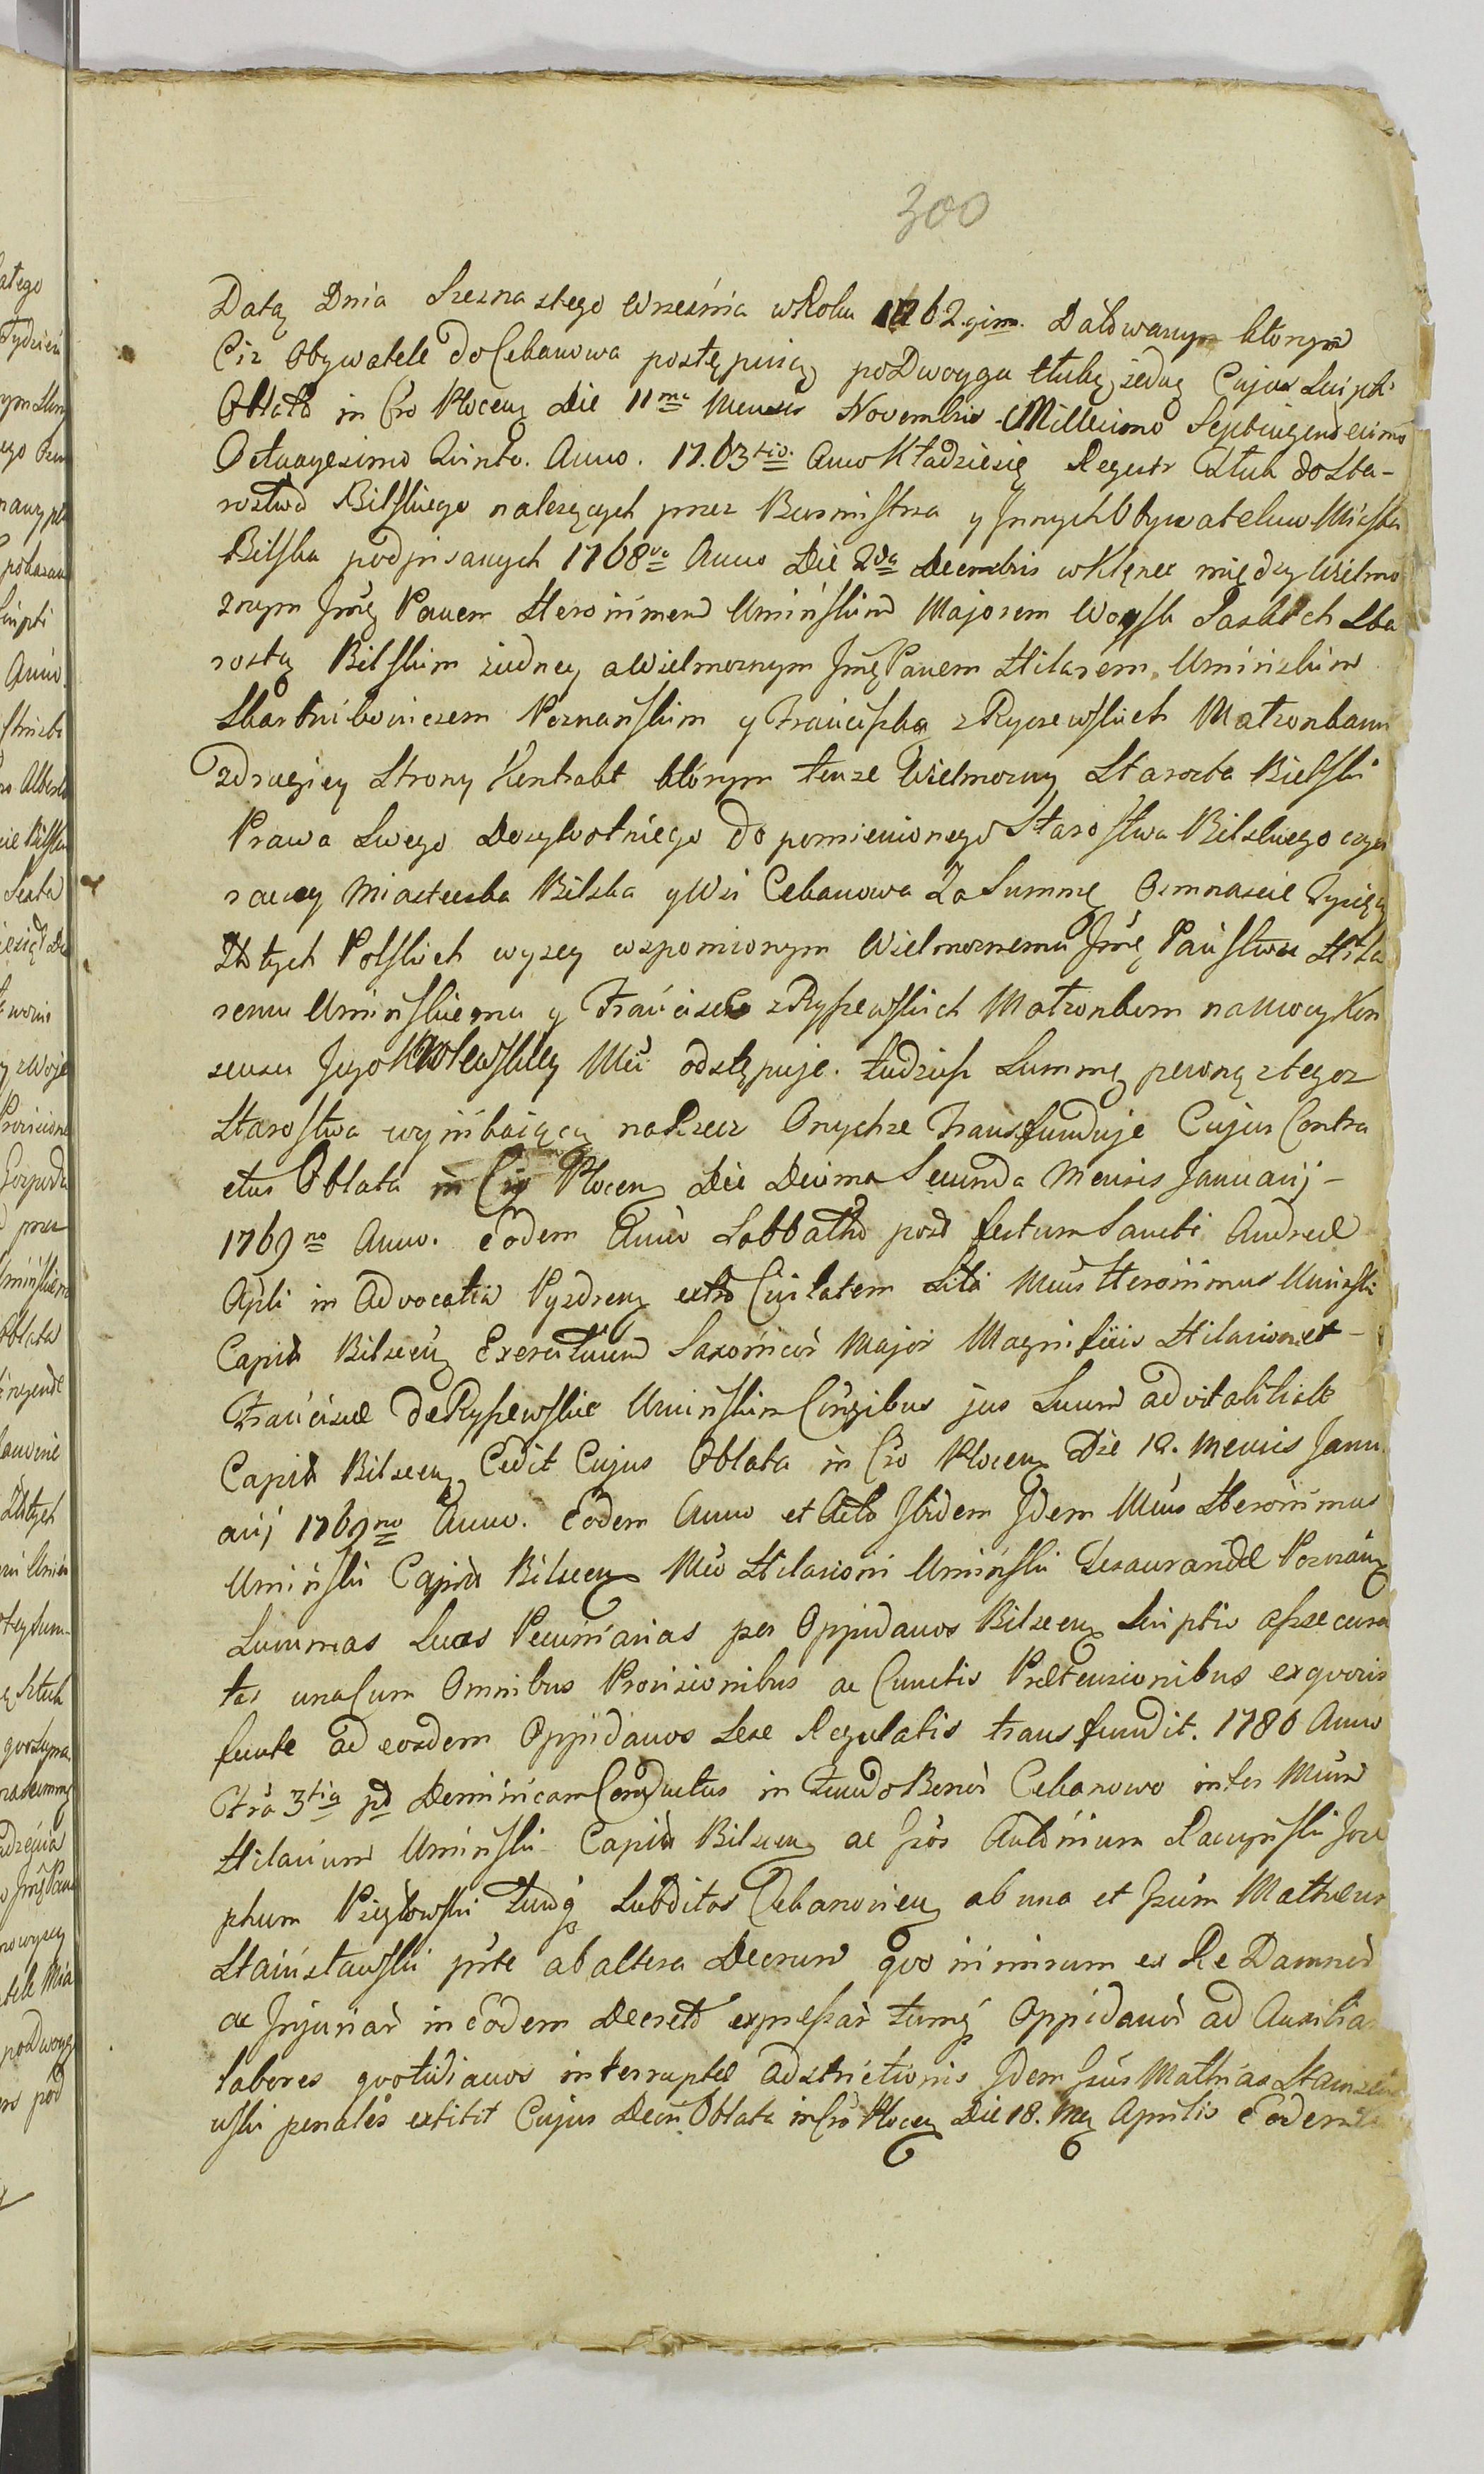 300
Datą Dnia Szesnastego Września w Roku 1762.gim. Datowanym którym
Ciż Obywatele do Cebanowa postępuią po Dwoygu Stukę jedną Cujus Scripti
Oblata in Cro Plocen Die 11ma Mensis Novembris Millesimo Septingentesimo
Octuagesimo Quinto. Anno. 17.63tio. Anno Kładzie się Regestr Sztuk do Sta-
rostwa Bilskiego należących przez Burmistrza y Innych Obywatelow Miasta
Bilska podpisanych 1768vo Anno Die 2da Decembris w Kłęnce między Wielmo
żnym Jmę Panem Heronimem Uminskim Majorem Woysk Saskich Sta
rostą Bilskim z iedney a Wielmożnym Jmę Panem Hilarem Uminskim
Skarbnikowiczem Poznańskim y Franciszką z Ryszewskich Małżonkami
z drugiey Strony Kontrakt którym tenże Wielmożny Starosta Bielski
Prawa Swego Dożywotniego do pomienionego Starostwa Bilskiego czyli
raczey Miasteczka Bilska y Wsi Cebanowa Za Summę Osmnaście Tysięcy
Złotych Polskich wyżey wspomionym Wielmożnemu Jmę Państwu Hila
remu Uminskiemu y Franciszce z Ryszewskich Małżonkom na Mocy Kon
sensu Jego Krolewskiey Mci odstępuje. tudzież Summę pewną z tegoż
Starostwa wynikaiącą na Rzecz Onychże Transfunduje Cujus Contra
ctus Oblata in Cro Plocen Die Decima Secunda Mensis Januarij -
1769no Anno. Eodem Anno Sabbatho post festum Sancti Andreæ
Apli in Advocatia Pyzdren extra Civitatem Sita Mcus Heronimus Uminski
Capits Bilscen Exercituum Saxonicor Major Magnificis Hilarion et -
Franciscæ de Ryszewskie Uminskim Conjgibus jus Suum advitalitiale
Capits Bilscen Cedit Cujus Oblata in Cro Plocen Die 12. Mensis Janu
arij 1769no Anno. Eodem Anno et Actu Ibidem Idem Mcus Heronimus
Uminski Capits Bilscen Mco Hilarioni Uminski Thesaurandæ Poznan
Summas Suas Pecuniarias per Oppidanos Bilscen Scriptis assecura
tas una Cum Omnibus Provisionibus ac Cunctis Prætensionibus ex quovis
fonte ad eosdem Oppidanos Sese Regulatis transfundit. 1786 Anno
Fra 3tia pd Dominicam Conductus in Fundo Bonor Cebanowo inter Mcum
Hilarium Uminski Capits Bilscen ac Fros Antonium Raczynski Jose
phum Pigłowski Tumq Subditos Cebanovien ab una et Frum Mathæum
Stanisławski pte ab altera Decrum quo inimirum ex Re Damnor
ac Injuriar in eodem Decreto expressar tumq Oppidanor ad Auxilia
labores quotidianos interruptæ adstrictionis Idem Frus Mathias Stanisła
wski penales extitit Cujus Decri Oblata in Cro Plocen Die 18. Mens Aprilis Eodem